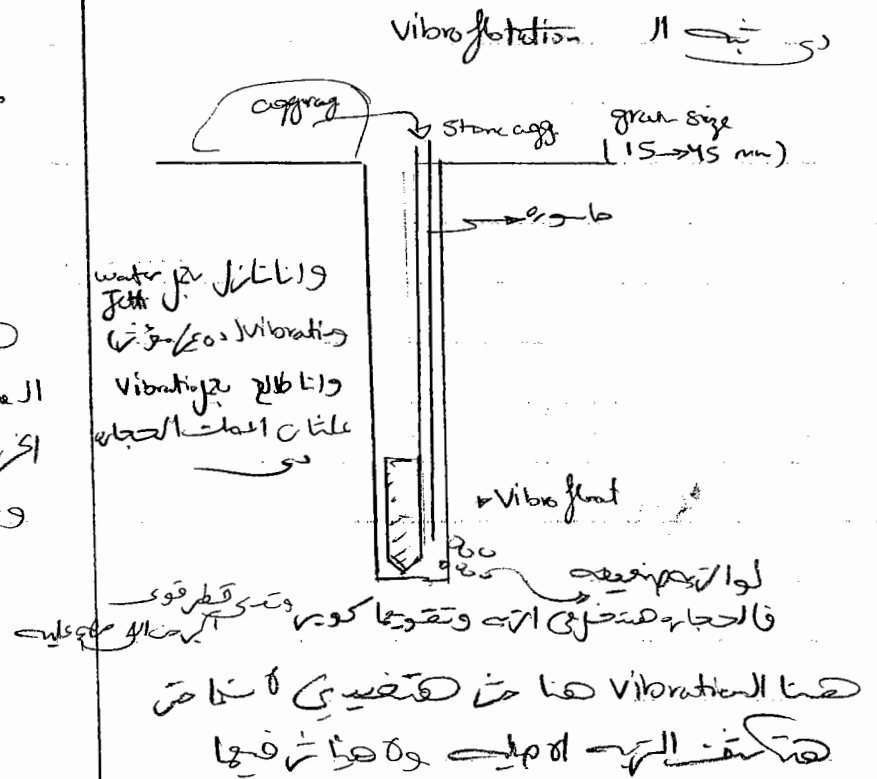 دى شبه ال Vibroflotation
aggrag
Stone agg
grain size
(15→45 mm)
ماسورة
وانا نازل بعمل water
Jett
Vibration
وانا طالع بعمل Vibration
علشان ادمك الحجاره
دى
Vibro float
لو التربه ضعيفه
فالحجاره هتدخل فى التربه وتقويها كويس وتدى قطر قوى
اكبر من اللى
هنا الـ Vibration هنا مش هتفيدنى لانها مش
هتكثف التربه الاصليه ولا هتأثر فيها
ال
و